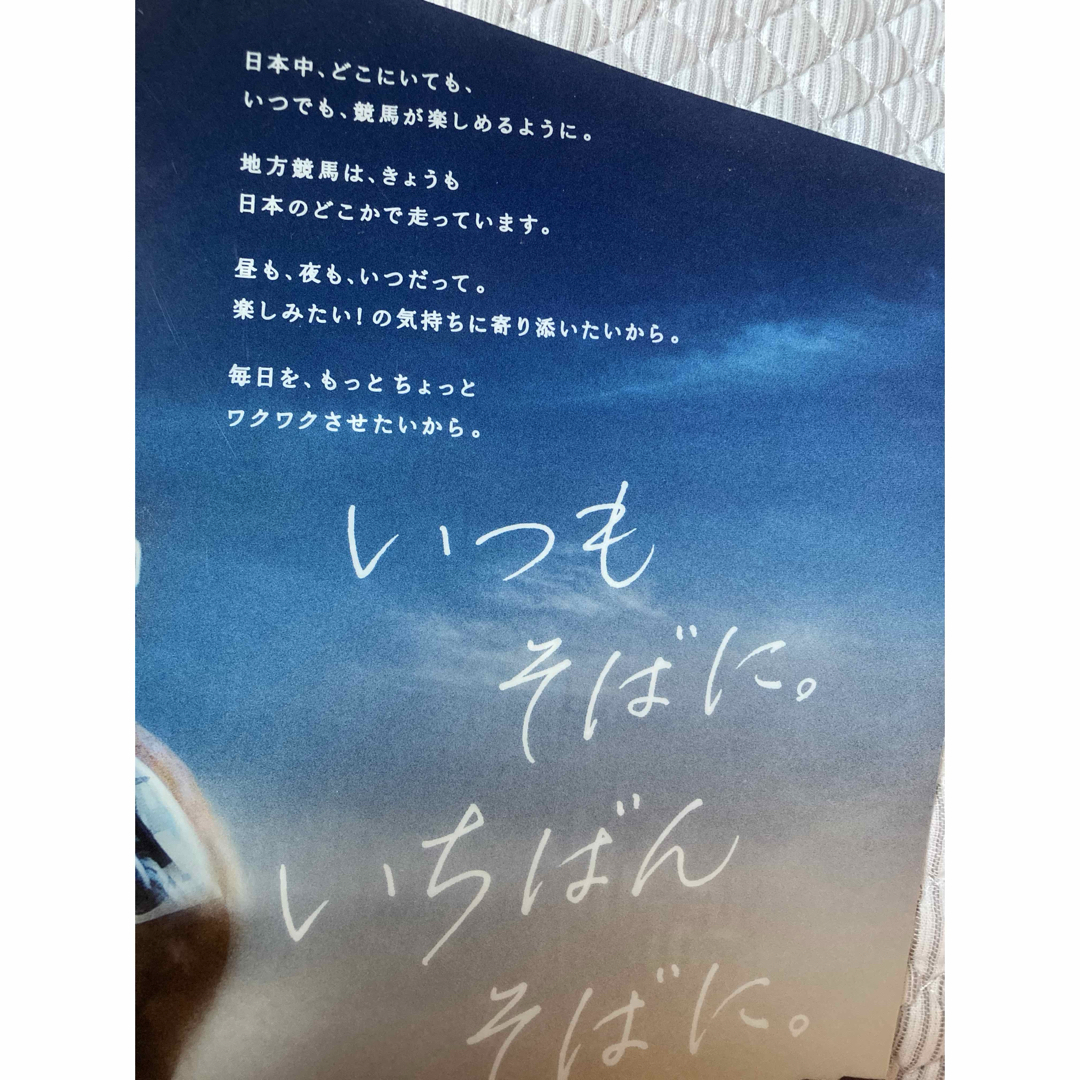 日本中、どこにいても、
いつでも、競馬が楽しめるように。
地方競馬は、きょうも
日本のどこかで走っています。
昼も、夜も、いつだって。
楽しみたい！の気持ちに寄り添いたいから。
毎日を、もっとちょっと
ワクワクさせたいから。
いつも
そばに。
いちばん
そばに。